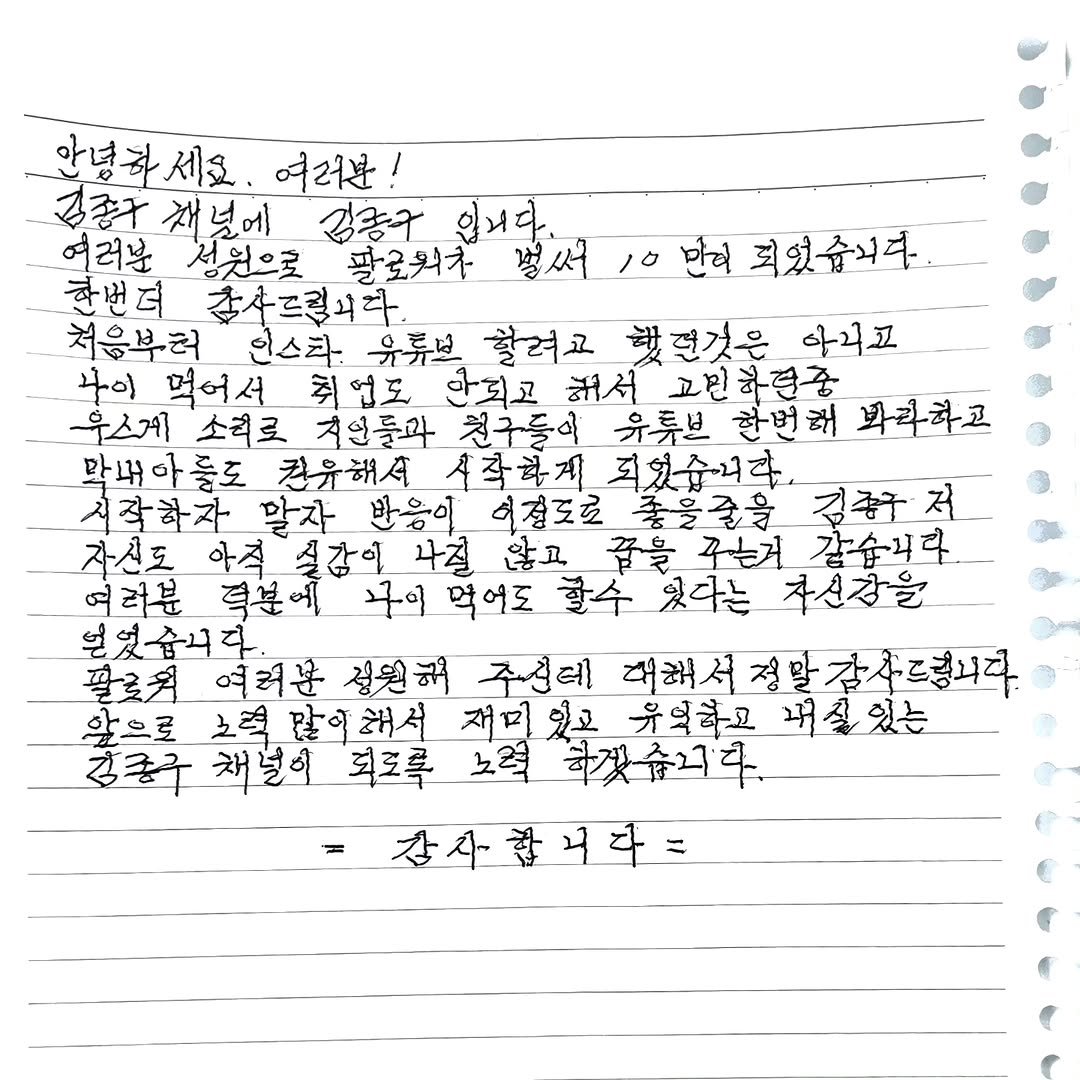 안녕하세요. 여러분!
김종구 채널에 김종구 입니다.
여러분 성원으로 팔로워가 벌써 10만이 되었습니다.
한번더 감사드립니다.
처음부터 인스타. 유튜브 할려고 했던것은 아니고
나이 먹어서 취업도 안되고 해서 고민하던중
우스게 소리로 지인들과 친구들이 유튜브 한번해 봐라하고
막내아들도 권유해서 시작하게 되었습니다.
시작하자 말자 반응이 이정도로 좋을줄을 김종구 저
자신도 아직 실감이 나질 않고 꿈을 꾸는거 같습니다.
여러분 덕분에 나이 먹어도 할수 있다는 자신감을
얻었습니다.
팔로워 여러분 성원해 주신데 대해서 정말 감사드립니다.
앞으로 노력 많이해서 재미있고 유익하고 내실있는
김종구 채널이 되도록 노력 하겠습니다.
= 감사합니다 =